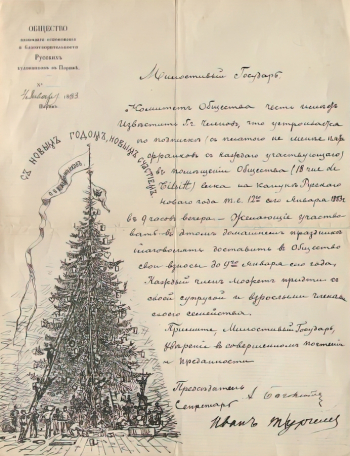 ОБЩЕСТВО
взаимнаго вспоможенія
и благотворительности
Русскихъ
художниковъ въ Парижѣ.
Января 1883
Парижъ
СЪ НОВЫМЪ ГОДОМЪ, НОВЫМЪ СЧАСТІЕМЪ
Милостивый Государь
Комитетъ Общества честь имѣетъ
известить Гг. Членовъ, что устроивается
по подпискѣ (съ платою не менѣе пяти
франковъ съ каждаго участвующаго)
въ помѣщеніи Общества (18 rue de
Tilsitt) елка на канунѣ Русскаго
Новаго года т.е. 12го сего Января 1883г.
въ 9 часовъ вечера. — Желающіе участво-
вать въ этомъ домашнемъ праздникѣ
благоволятъ доставить въ Общество
свои взносы до 9го Января сего года.
Каждый членъ можетъ придти съ
своей супругой и взрослыми членами
своего семейства.
Примите, Милостивый Государь,
увѣреніе въ совершенномъ почтеніи
и преданности.
Председатель
Секретарь
А Боголюбовъ
Иванъ Тургеневъ